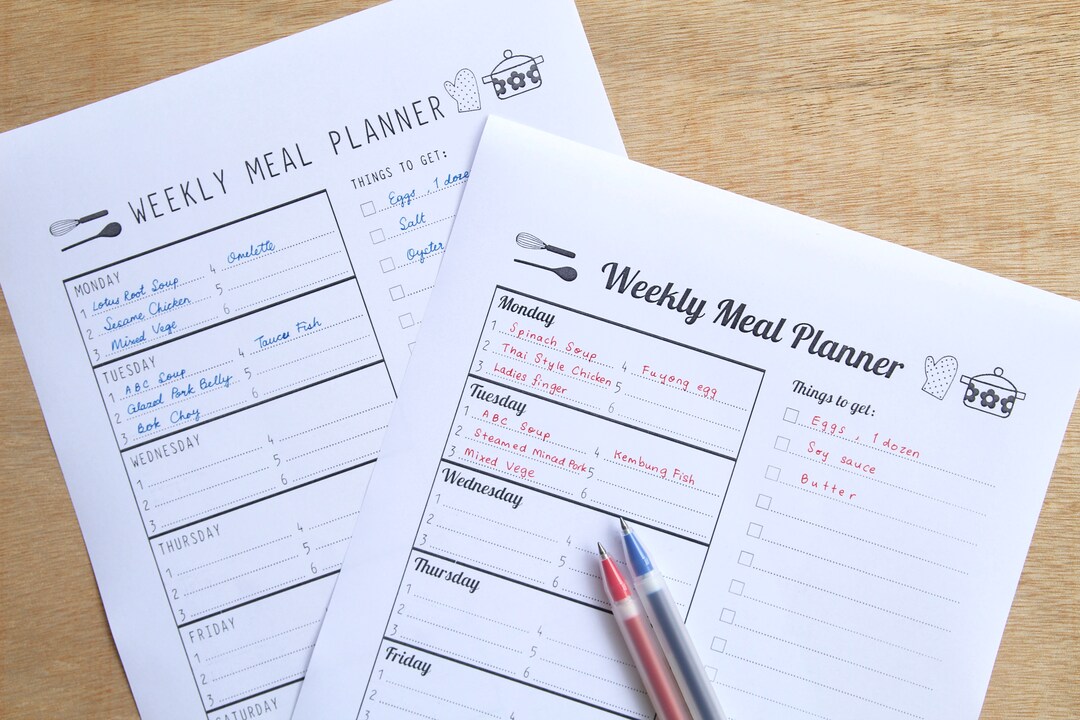 WEEKLY MEAL PLANNER
MONDAY
1 Lotus Root Soup 4 Omelette
2 Sesame Chicken 5
3 Mixed Vege 6
TUESDAY
1 ABC Soup 4 Taucu Fish
2 Glazed Pork Belly 5
3 Bok Choy 6
WEDNESDAY
1 4
2 5
3 6
THURSDAY
1 4
2 5
3 6
FRIDAY
1
2
3
SATURDAY
THINGS TO GET:
Eggs , 1 doze
Salt
Oyster
Weekly Meal Planner
Monday
1 Spinach Soup 4 Fuyong egg
2 Thai Style Chicken 5
3 Ladies finger 6
Tuesday
1 ABC Soup 4 Kembung Fish
2 Steamed Minced Pork 5
3 Mixed Vege 6
Wednesday
1 4
2 5
3 6
Thursday
1 4
2 5
3 6
Friday
1
2
3
Things to get:
Eggs , 1 dozen
Soy sauce
Butter